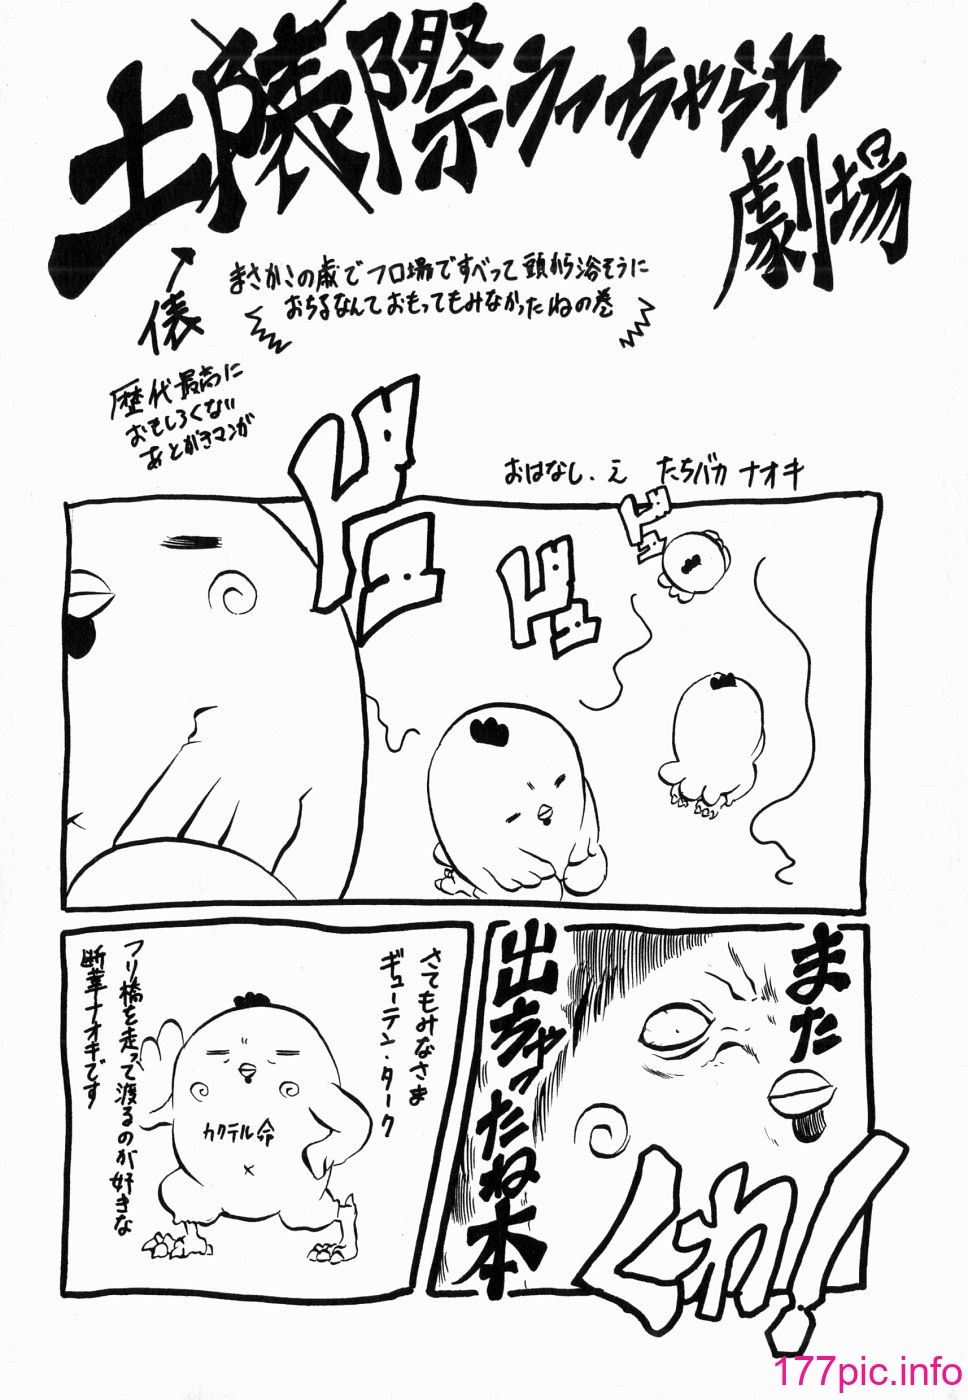 土俵際うっちゃられ
劇場
↗俵
まさかこの歳でフロ場ですべって頭から浴そうに
おちるなんておもってもみなかったねの巻
歴代最高に
おもしろくない
あとがきマンガ
おはなし.え たちバカ ナオキ
ドュ
ドュ
ドュ
また
出ちゃったね本
くわ!
さてもみなさま
ギューテン・ターク
フリ橋を走って渡るのが好きな
断華ナオキです
カクテル命
177pic.info